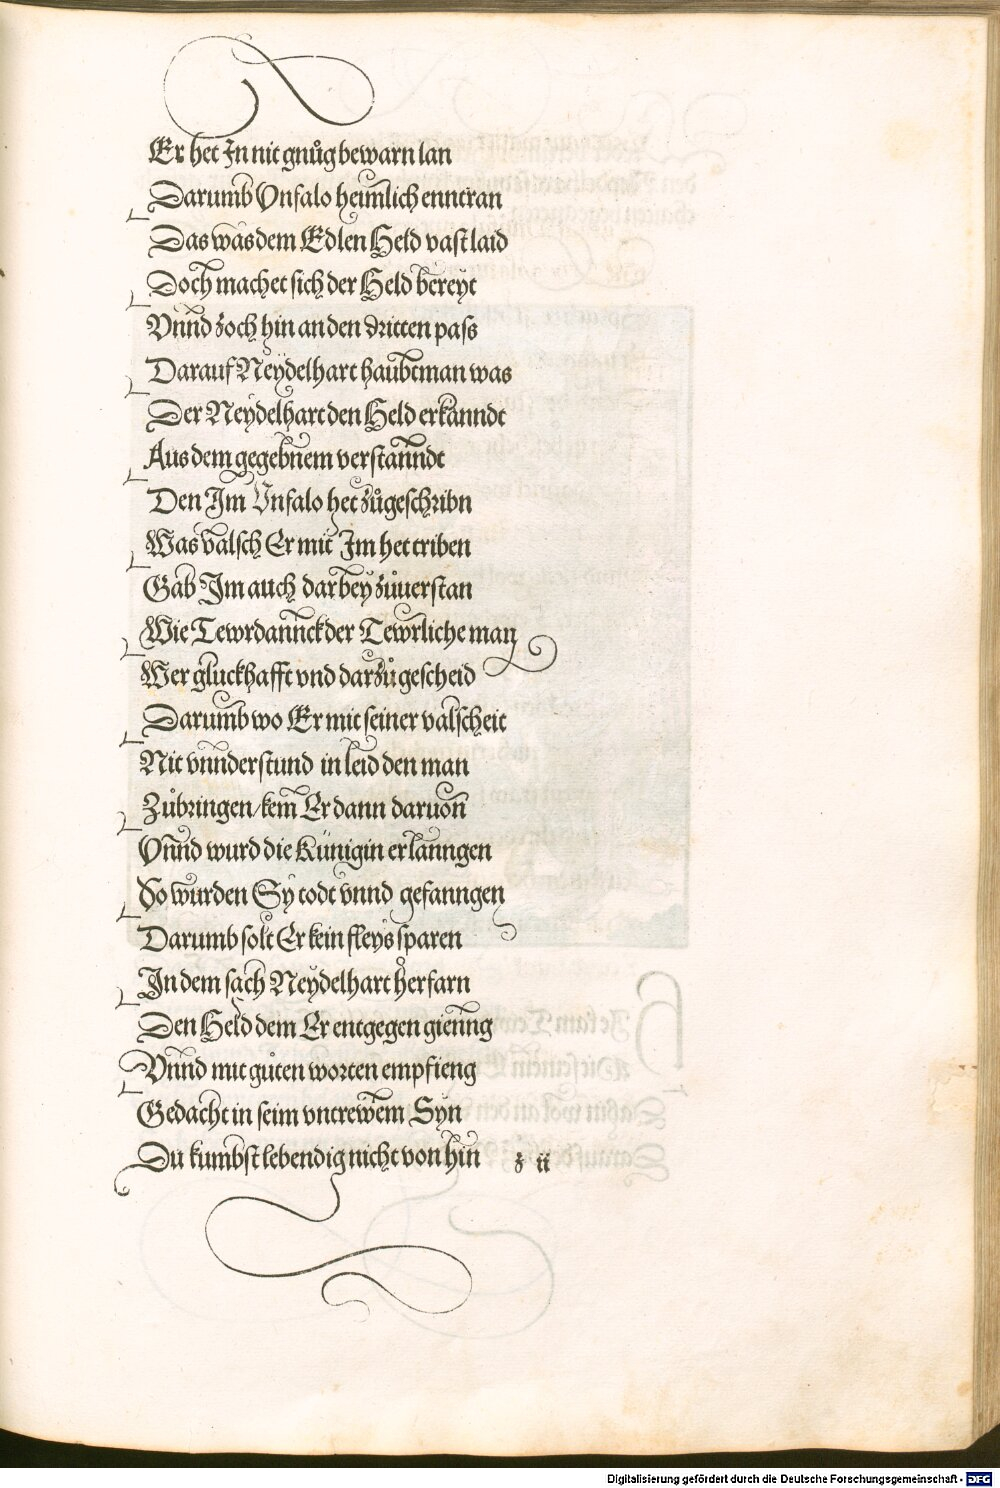 Er het In nit gnůg bewarn lan
Darumb Vnfalo heimlich enntran
Das was dem Edlen Held vast laid
Doch machet sich der Held bereyt
Vnnd zoch hin an den dritten pass
Darauf Neydelhart haubtman was
Der Neydelhart den Held erkanndt
Aus dem gegebnem verstanndt
Den Im Vnfalo het zůgeschribn
Was valsch Er mit Im het triben
Gab Im auch darbey zůuerstan
Wie Tewrdannck der Tewrliche man
Wer gluckhafft vnd darzů gescheid
Darumb wo Er mit seiner valscheit
Nit vnnderstund in leid den man
Zůbringen / kem Er dann daruon
Vnnd wurd die Künigin erlanngen
So wurden Sy todt vnnd gefanngen
Darumb solt Er kein fleys sparen
In dem sach Neydelhart herfarn
Den Held dem Er entgegen gienng
Vnnd mit gůten worten empfieng
Gedacht in seim vntrewem Syn
Du kumbst lebendig nicht von hin z ii
Digitalisierung gefördert durch die Deutsche Forschungsgemeinschaft - DFG